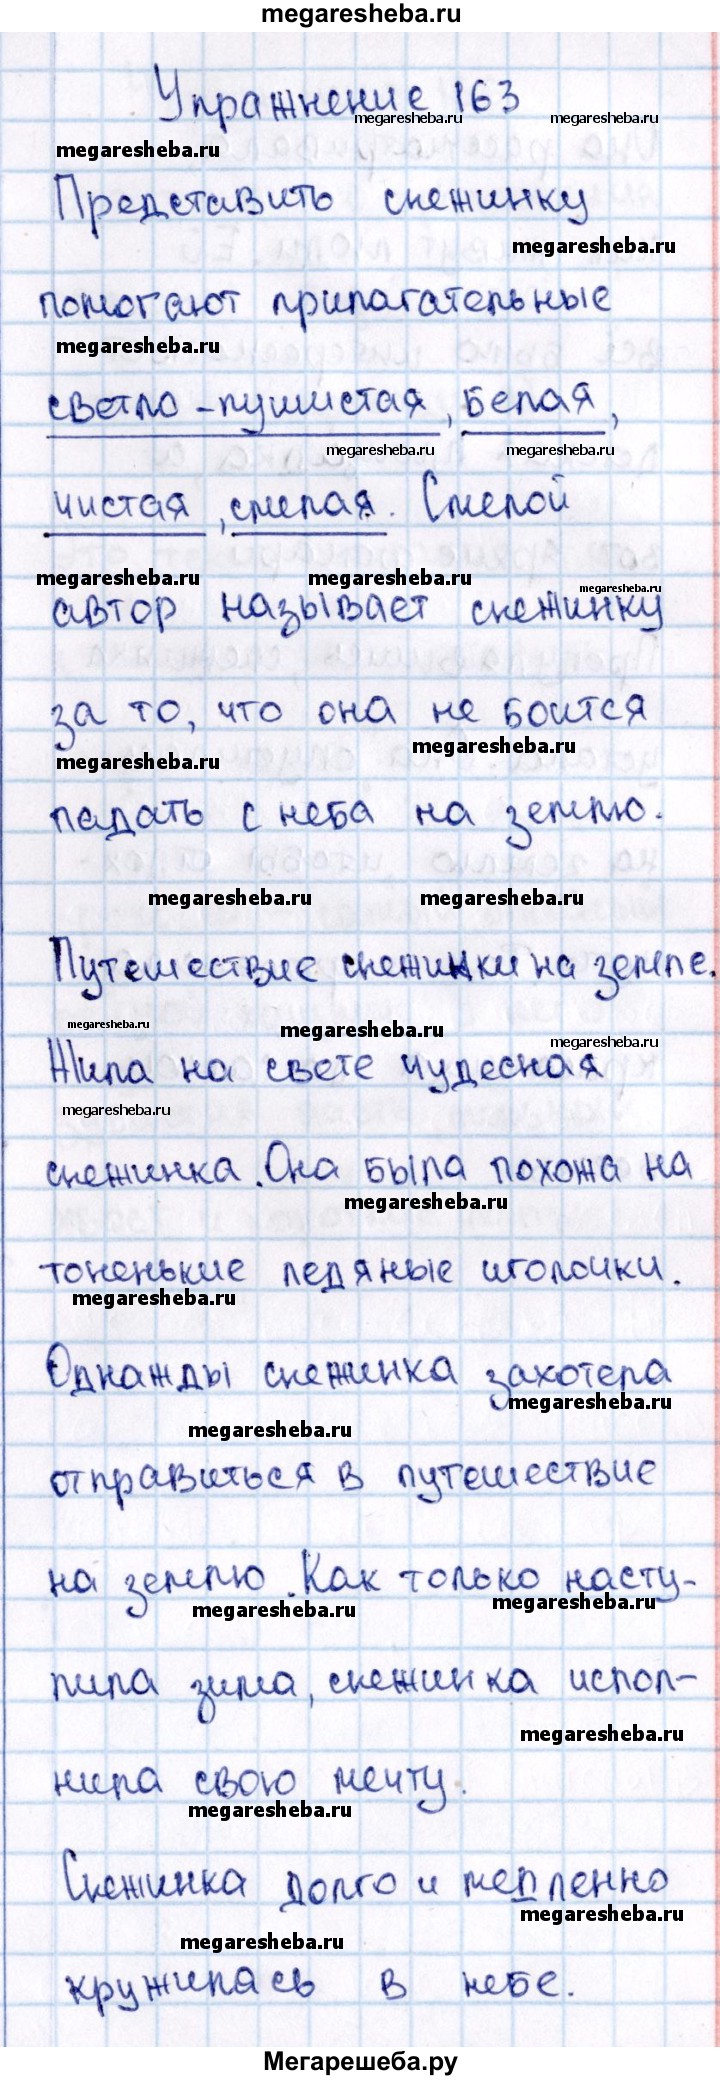 megaresheba.ru
Упражнение 163
megaresheba.ru megaresheba.ru
megaresheba.ru
Представить снежинку
megaresheba.ru
помогают прилагательные
megaresheba.ru
светло-пушистая, белая,
megaresheba.ru megaresheba.ru
чистая, смелая. Смелой
megaresheba.ru megaresheba.ru megaresheba.ru
автор называет снежинку
за то, что она не боится
megaresheba.ru megaresheba.ru
падать с неба на землю.
megaresheba.ru megaresheba.ru
Путешествие снежинки на земле.
megaresheba.ru megaresheba.ru megaresheba.ru
Жила на свете чудесная
megaresheba.ru
снежинка. Она была похожа на
megaresheba.ru
тоненькие ледяные иголочки.
megaresheba.ru
Однажды снежинка захотела
megaresheba.ru megaresheba.ru
отправиться в путешествие
на землю. Как только насту-
megaresheba.ru megaresheba.ru
пила зима, снежинка испол-
megaresheba.ru
нила свою мечту.
megaresheba.ru
Снежинка долго и медленно
megaresheba.ru
megaresheba.ru
кружилась в небе.
Мегарешеба.ру